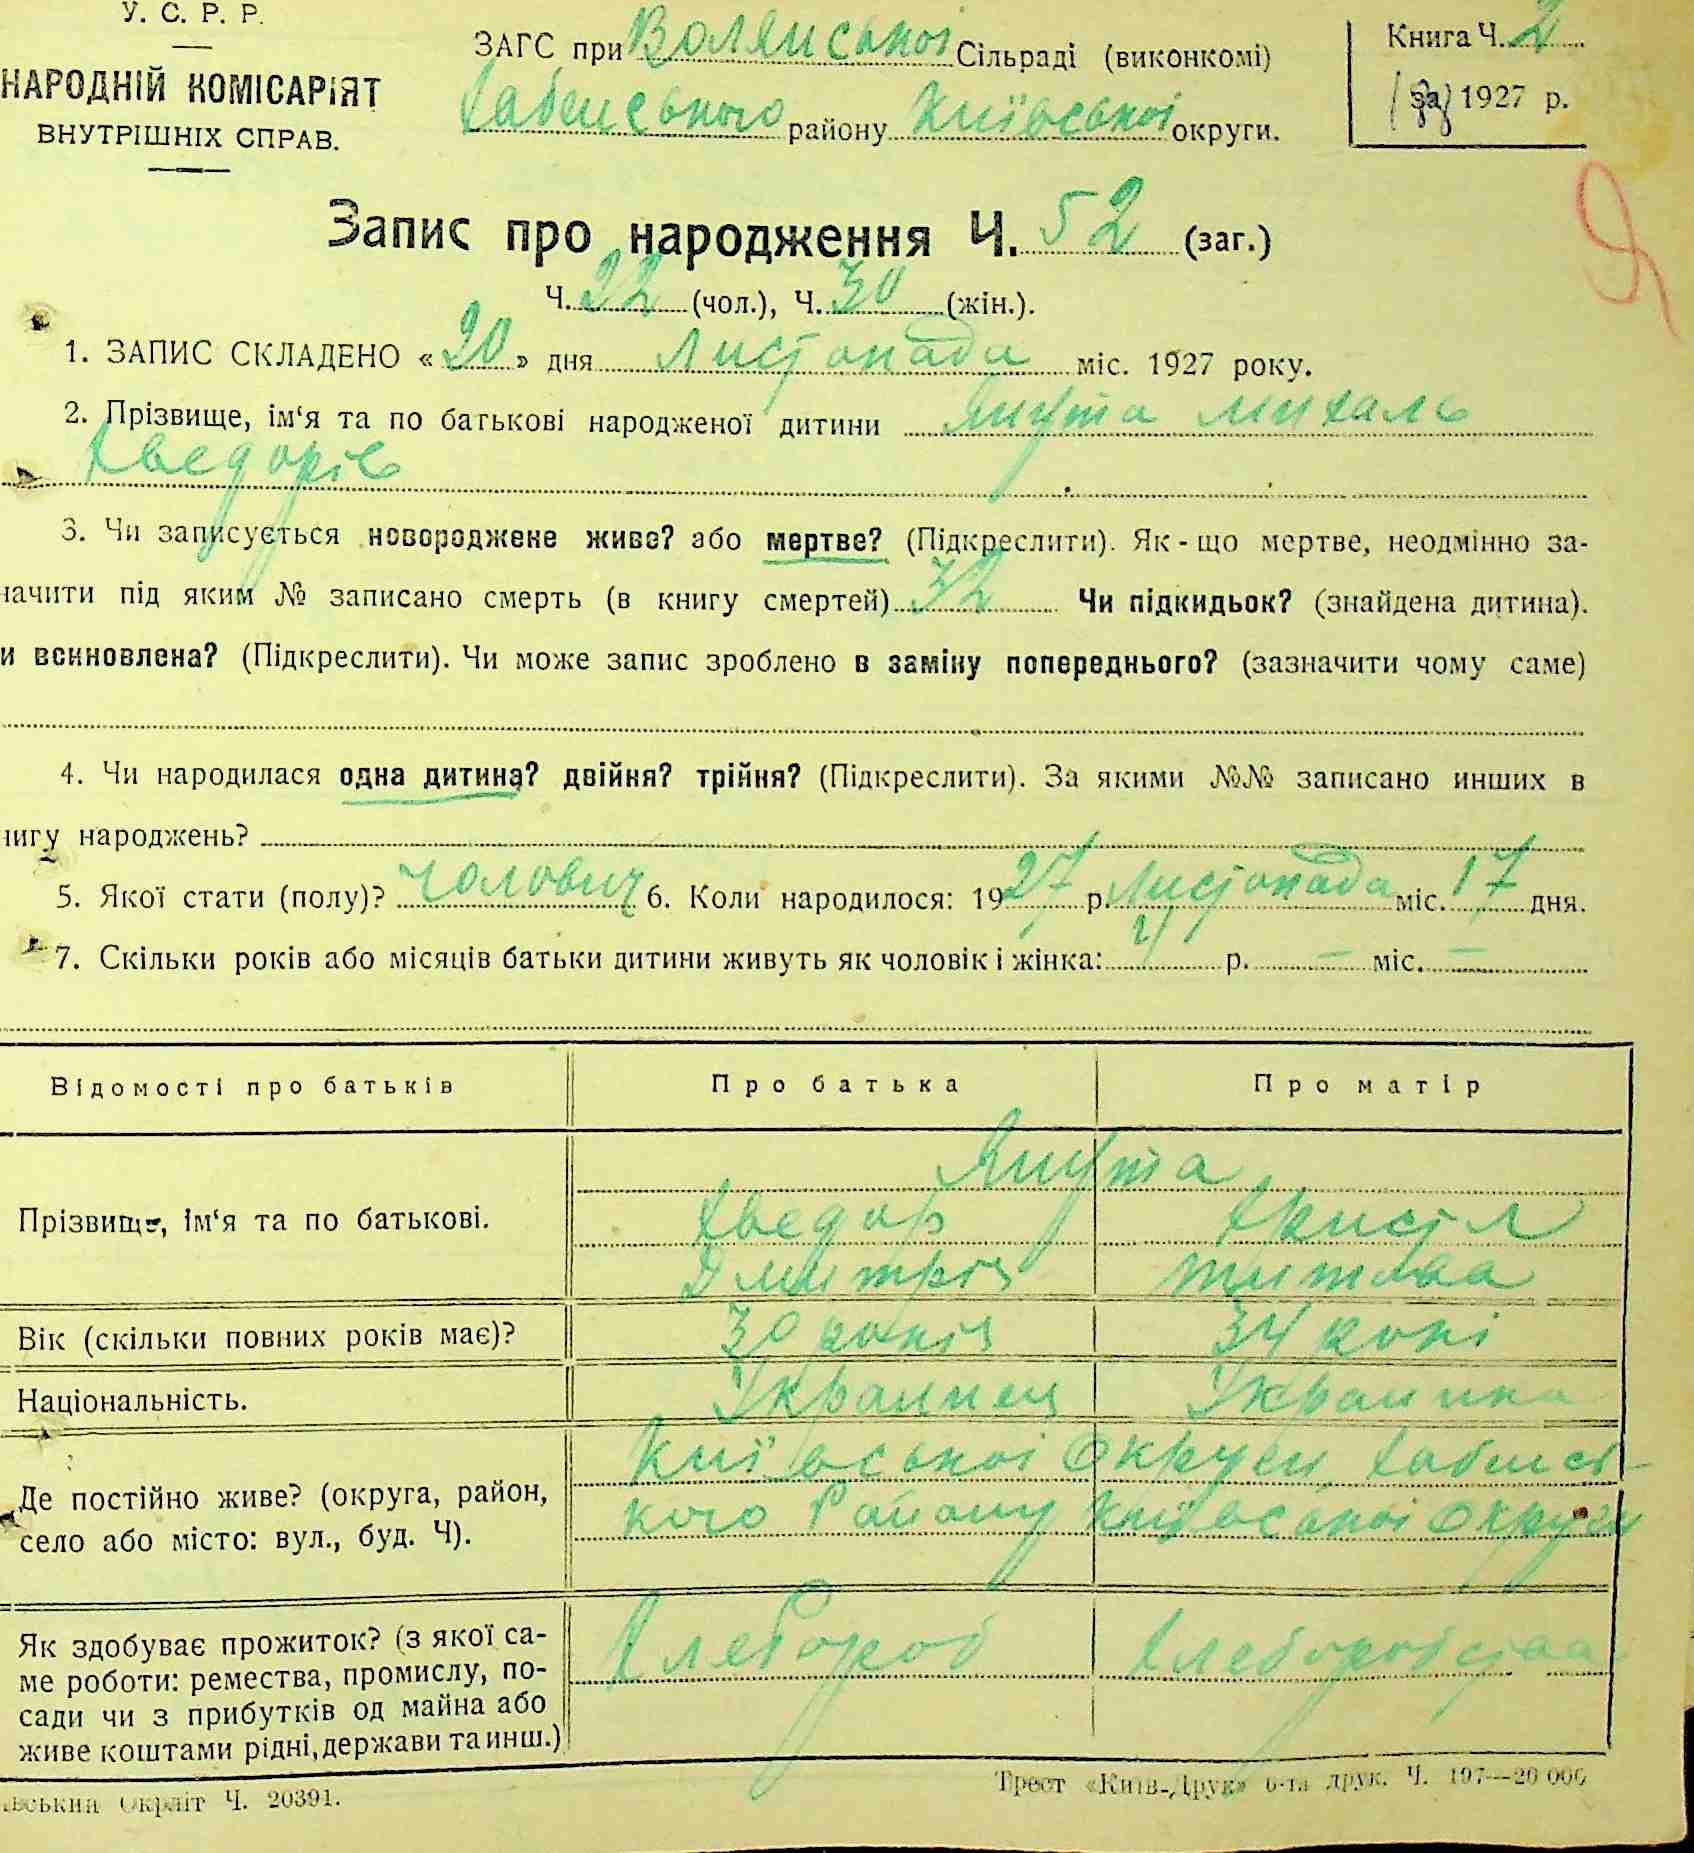 У. С. Р. Р.
НАРОДНІЙ КОМІСАРІЯТ
ВНУТРІШНІХ СПРАВ.
ЗАГС при Волянської Сільраді (виконкомі)
Хабенського району Київської округи.
Книга Ч. 2
за 1927 р.
Запис про народження Ч. 52 (заг.)
Ч. 22 (чол.), Ч. 30 (жін.).
1. ЗАПИС СКЛАДЕНО « 20 » дня Листопада міс. 1927 року.
2. Прізвище, ім‘я та по батькові народженої дитини михаль
Хведорів
3. Чи записується новороджене живе? або мертве? (Підкреслити). Як-що мертве, неодмінно за-
начити під яким № записано смерть (в книгу смертей) 32 Чи підкидьок? (знайдена дитина).
и всиновлена? (Підкреслити). Чи може запис зроблено в заміну попереднього? (зазначити чому саме)
4. Чи народилася одна дитина? двійня? трійня? (Підкреслити). За якими №№ записано инших в
нигу народжень?
5. Якої стати (полу)? чолович 6. Коли народилося: 1927 р. Листопада міс. 17 дня.
7. Скільки років або місяців батьки дитини живуть як чоловік і жінка: 4 р. – міс. –
Відомості про батьків Про батька Про матір
Прізвище, ім‘я та по батькові.
Хведор
Дмитрів
Вік (скільки повних років має)? 30 років 34 рокі
Національність. Украинец Украинка
Київської Округи Хабенсь-
Де постійно живе? (округа, район,
кого Району Київської Округи
село або місто: вул., буд. Ч).
Хлебороб Хлеборобства
Як здобуває прожиток? (з якої са-
ме роботи: ремества, промислу, по-
сади чи з прибутків од майна або
живе коштами рідні, держави та инш.)
Окрліт Ч. 20391.
Трест «Київ-Друк» 6-та друк. Ч. 197—20 000